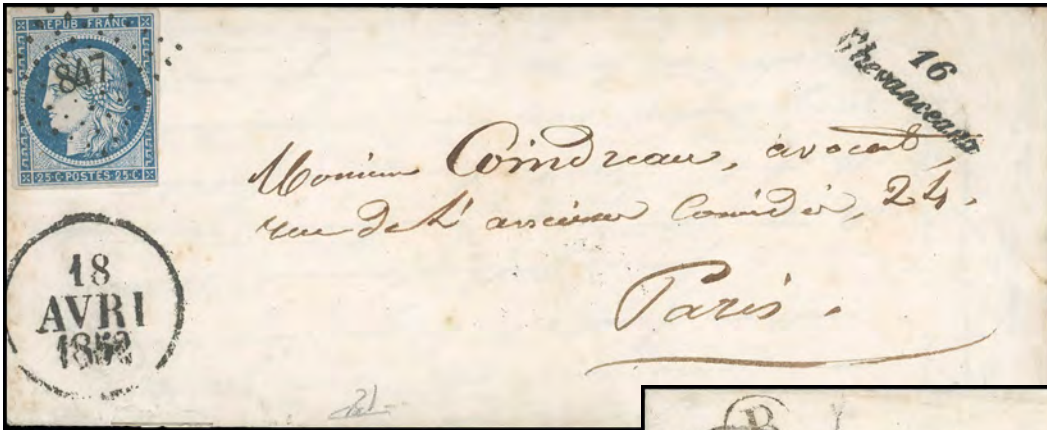 REPUB FRANC
847
25 C POSTES 25 C
16
Chevanceaux
Monsieur Coindreau, avocat,
rue de l'ancienne Comédie, 24.
Paris.
18
AVRI
1852
B